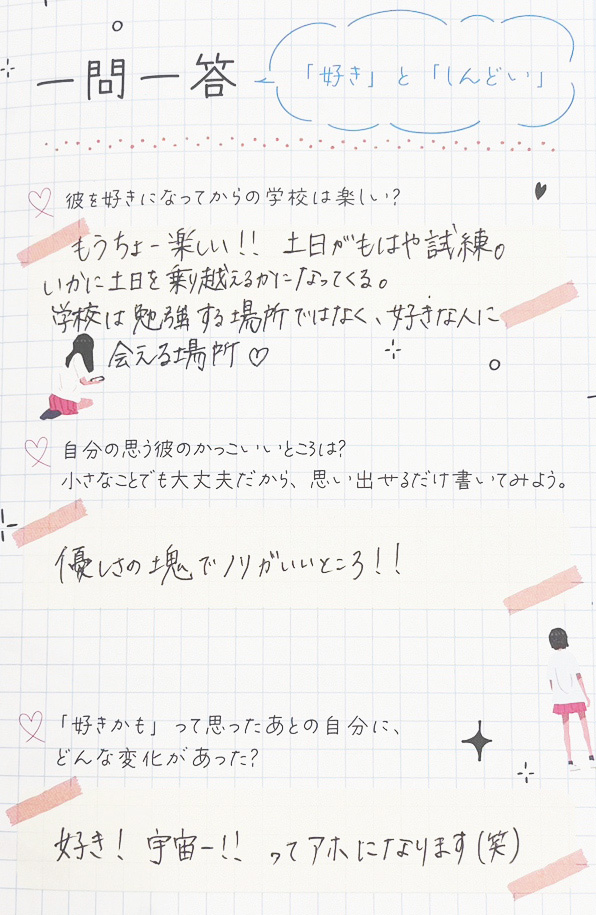 一問一答
「好き」と「しんどい」
彼を好きになってからの学校は楽しい?
もうちょー楽しい!! 土日がもはや試練。
いかに土日を乗り越えるかになってくる。
学校は勉強する場所ではなく、好きな人に
会える場所♡
自分の思う彼のかっこいいところは?
小さなことでも大丈夫だから、思い出せるだけ書いてみよう。
優しさの塊でノリがいいところ!!
「好きかも」って思ったあとの自分に、
どんな変化があった?
好き! 宇宙ー!! ってアホになります(笑)